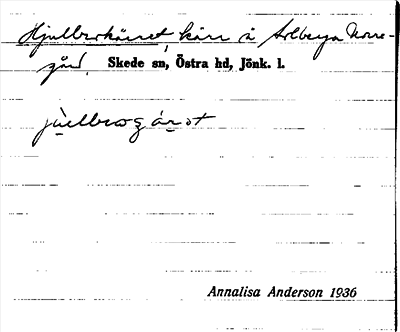 Hjulbrokärret, kärr å Solberga Norre-
gård. Skede sn, Östra hd, Jönk. l.
Annalisa Anderson 1936